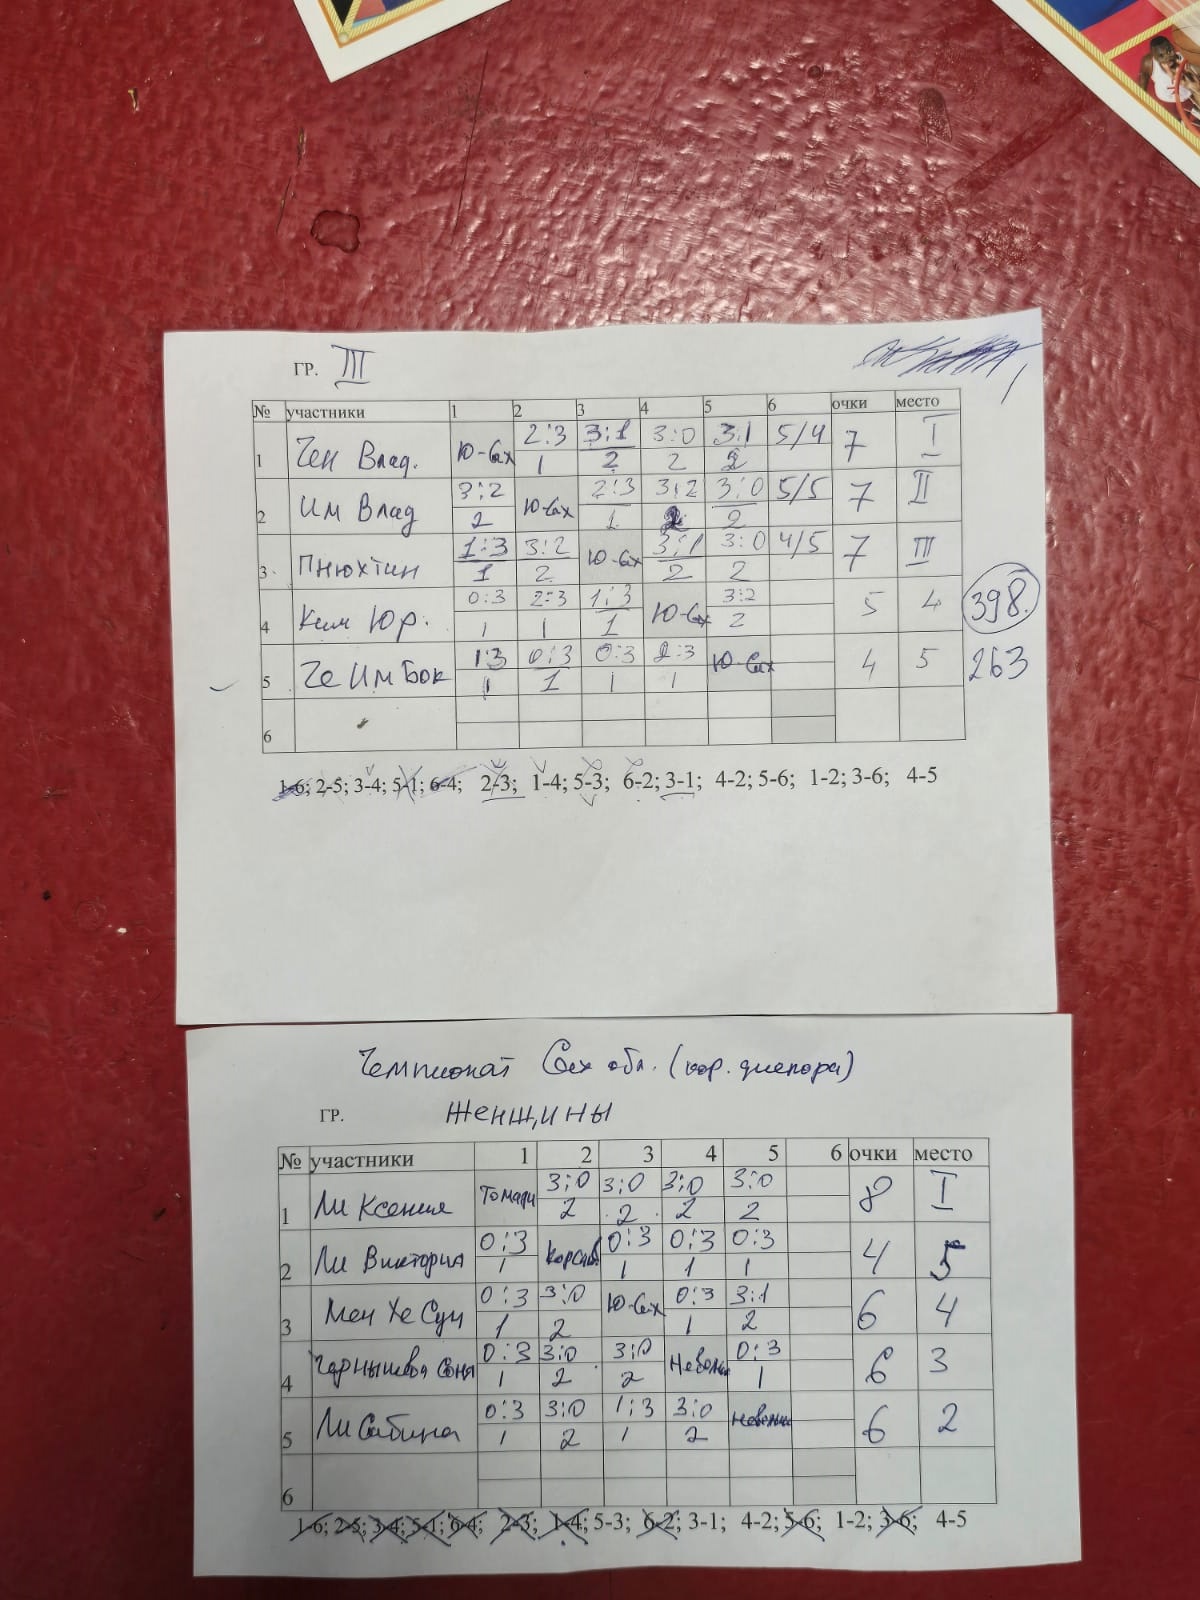 ГР. III
№ участники 1 2 3 4 5 6 очки место
1 Чен Влад. Ю-Сах 2:3 3:1 3:0 3:1 5/4 7 I
1 2 2 2
2 Им Влад 3:2 Ю-Сах 2:3 3:2 3:0 5/5 7 II
2 1 2 2
3. Пнюхтин 1:3 3:2 Ю-Сах 3:1 3:0 4/5 7 III
1 2 2 2
4 Ким Юр. 0:3 2:3 1:3 Ю-Сах 3:2 5 4 398.
1 1 1 2
5 Че Им Бок 1:3 0:3 0:3 2:3 Ю-Сах 4 5 263
1 1 1 1
6
1-6; 2-5; 3-4; 5-1; 6-4; 2-3; 1-4; 5-3; 6-2; 3-1; 4-2; 5-6; 1-2; 3-6; 4-5
Чемпионат Сах обл. (кор. диспора)
ГР. Женщины
№ участники 1 2 3 4 5 6 очки место
1 Ли Ксения Томари 3:0 3:0 3:0 3:0 8 I
2 2 2 2
2 Ли Виктория 0:3 Корсаков 0:3 0:3 0:3 4 5
1 1 1 1
3 Мен Хе Сун 0:3 3:0 Ю-Сах 0:3 3:1 6 4
1 2 1 2
4 Чернышева Соня 0:3 3:0 3:0 0:3 6 3
1 2 2 1
5 Ли Сабина 0:3 3:0 1:3 3:0 6 2
1 2 1 2
6
1-6; 2-5; 3-4; 5-1; 6-4; 2-3; 1-4; 5-3; 6-2; 3-1; 4-2; 5-6; 1-2; 3-6; 4-5